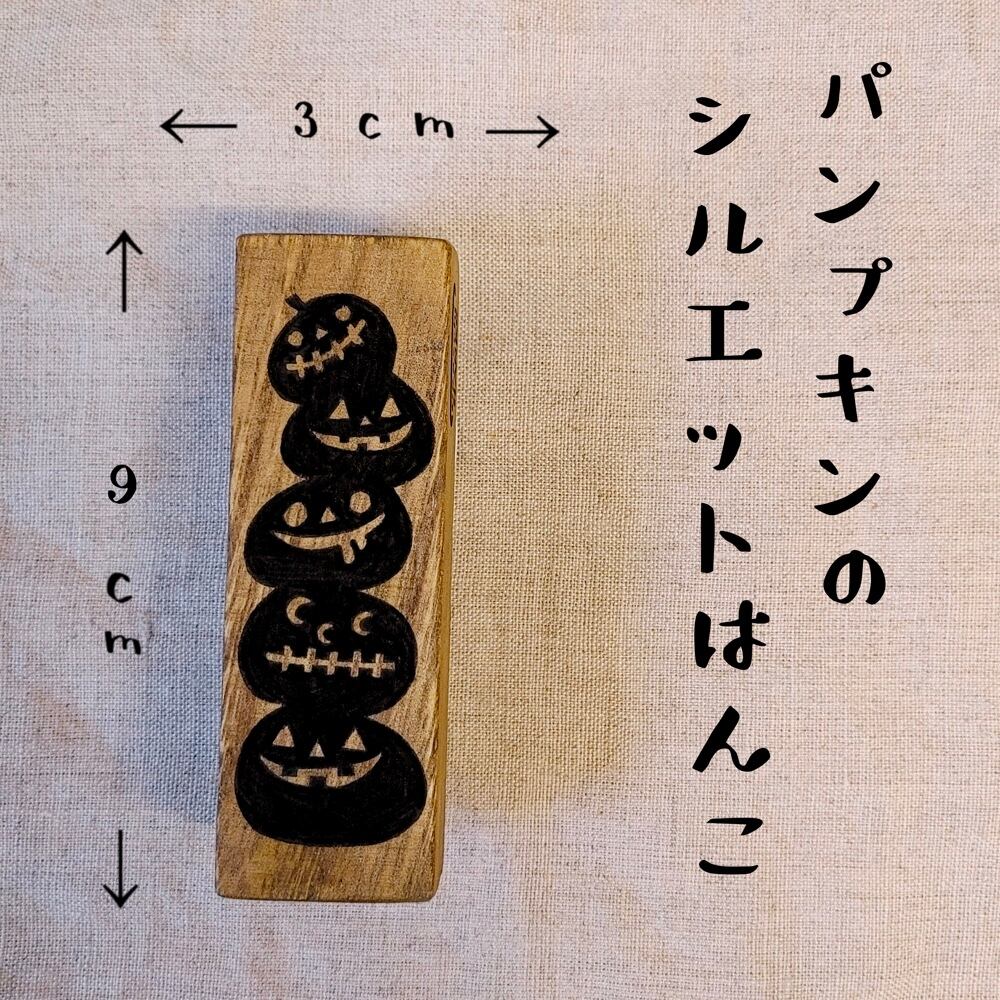 パンプキンの
シルエットはんこ
3cm
9cm